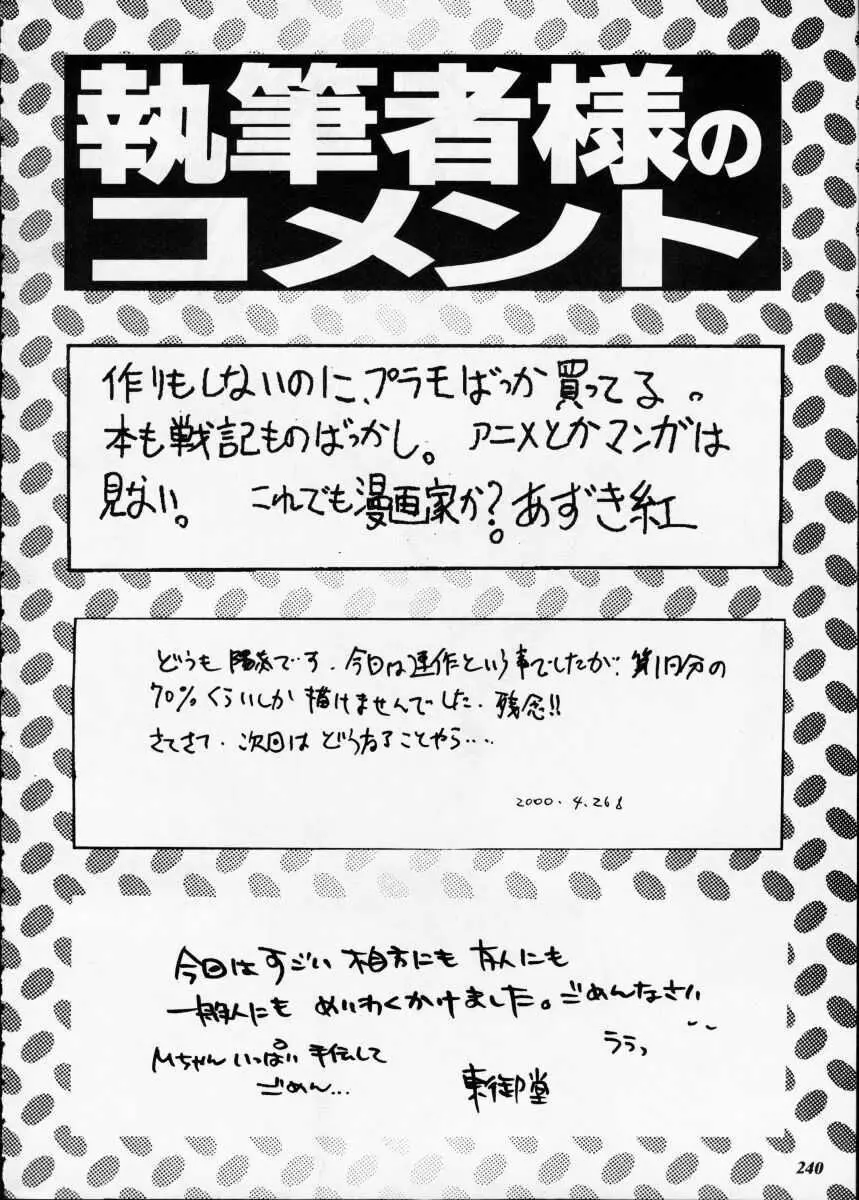 執筆者様の
コメント
作りもしないのに、プラモばっか買ってる。
本も戦記ものばっかし。アニメとかマンガは
見ない。 これでも漫画家か?あずき紅
どうも陽炎です。今回は連作という事でしたが、第1回分の
70%くらいしか描けませんでした。残念!!
さてさて、次回はどうなることやら‥‥
2000.4.26
今回はすごい相方にも友人にも
一般人にもめいわくかけました。ごめんなさい
ううっ
Mちゃんいっぱい手伝して
ごめん...
東御堂
240